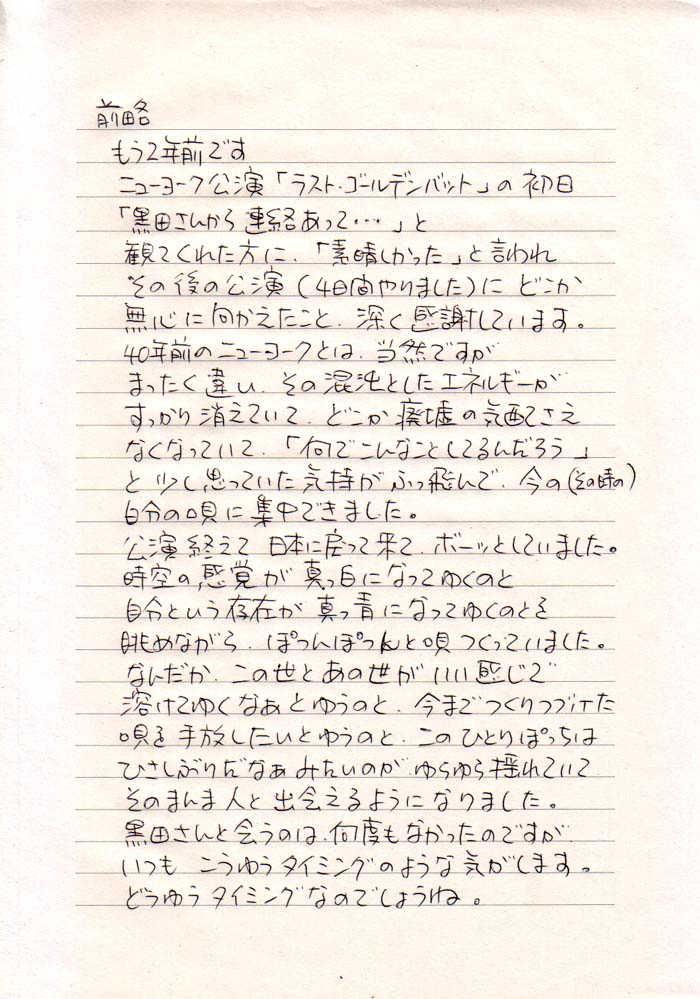 前略
もう2年前です
ニューヨーク公演「ラスト・ゴールデンバット」の初日
「黒田さんから連絡あって…」と
観てくれた方に、「素晴しかった」と言われ
その後の公演(4日間やりました)にどこか
無心に向かえたこと、深く感謝しています。
40年前のニューヨークとは、当然ですが
まったく違い、その混沌としたエネルギーが
すっかり消えていて、どこか廃墟の気配さえ
なくなっていて、「何でこんなことしてるんだろう」
と少し思っていた気持がふっ飛んで、今の(その時の)
自分の唄に集中できました。
公演終えて日本に戻って来て、ボーッとしていました。
時空の感覚が真っ白になってゆくのと
自分という存在が真っ青になってゆくのとを
眺めながら、ぽつんぽつんと唄つくっていました。
なんだか、この世とあの世がいい感じで
溶けてゆくなぁとゆうのと、今までつくりつづけた
唄を手放したいとゆうのと、このひとりぽっちは
ひさしぶりだなぁみたいのが、ゆらゆら揺れていて
そのまんま人と出会えるようになりました。
黒田さんと会うのは、何度もなかったのですが
いつも こうゆうタイミングのような気がします。
どうゆうタイミングなのでしょうね。